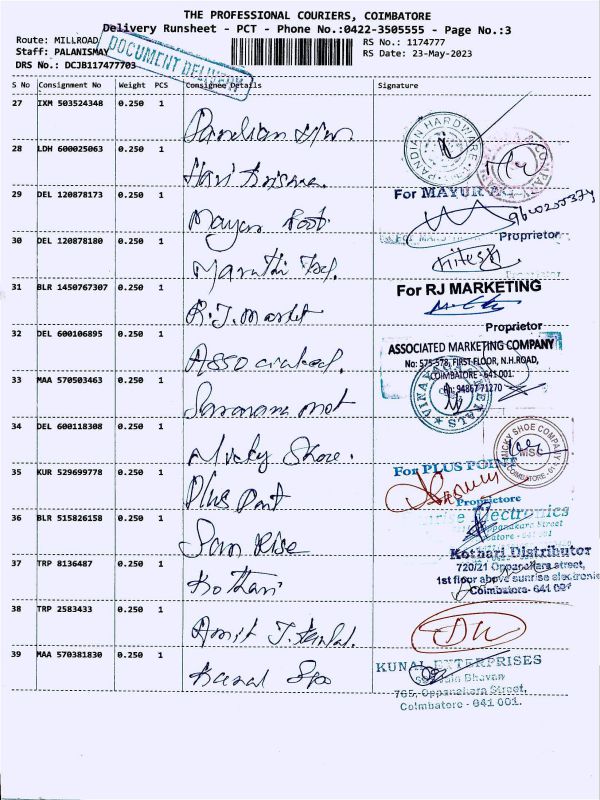 THE PROFESSIONAL COURIERS, COIMBATORE
Delivery Runsheet - PCT - Phone No.:0422-3505555 - Page No.:3
Route: MILLROAD
RS No.: 1174777
Staff: PALANISMAY
RS Date: 23-May-2023
DRS No.: DCJB117477703
DOCUMENT DELIVERY
S No Consignment No Weight PCS Consignee Details Signature
27 IXM 503524348 0.250 1
Pandian H/w.
PANDIAN HARDWARE
28 LDH 600025063 0.250 1
Hari Krishna.
29 DEL 120878173 0.250 1
For MAYUR
Mayur Foot.
Proprietor
30 DEL 120878180 0.250 1
Maruthi
Hitesh
31 BLR 1450767307 0.250 1
For RJ MARKETING
R.J. Market
Proprietor
32 DEL 600106895 0.250 1
ASSOCIATED MARKETING COMPANY
No: 575-578, FIRST FLOOR, N.H.ROAD,
COIMBATORE - 641 001.
Ph: 94867 71270
Associated.
33 MAA 570503463 0.250 1
Saravana met
34 DEL 600118308 0.250 1
Micky Shoe.
MICKY SHOE COMPANY
MSC
COIMBATORE
35 KUR 529699778 0.250 1
For PLUS POINT
Plus Point
Proprietore
36 BLR 515826158 0.250 1
Electronics
Oppanakara Street
Sun Rise
37 TRP 8136487 0.250 1
Kothari Distributor
720/21 Oppanakara street,
1st floor above sunrise electronic
Coimbatore- 641 001
Kothari
38 TRP 2583433 0.250 1
Amit
39 MAA 570381830 0.250 1
KUNAL ENTERPRISES
Bhavan
765, Oppanakara Street,
Coimbatore - 641 001.
Kunal